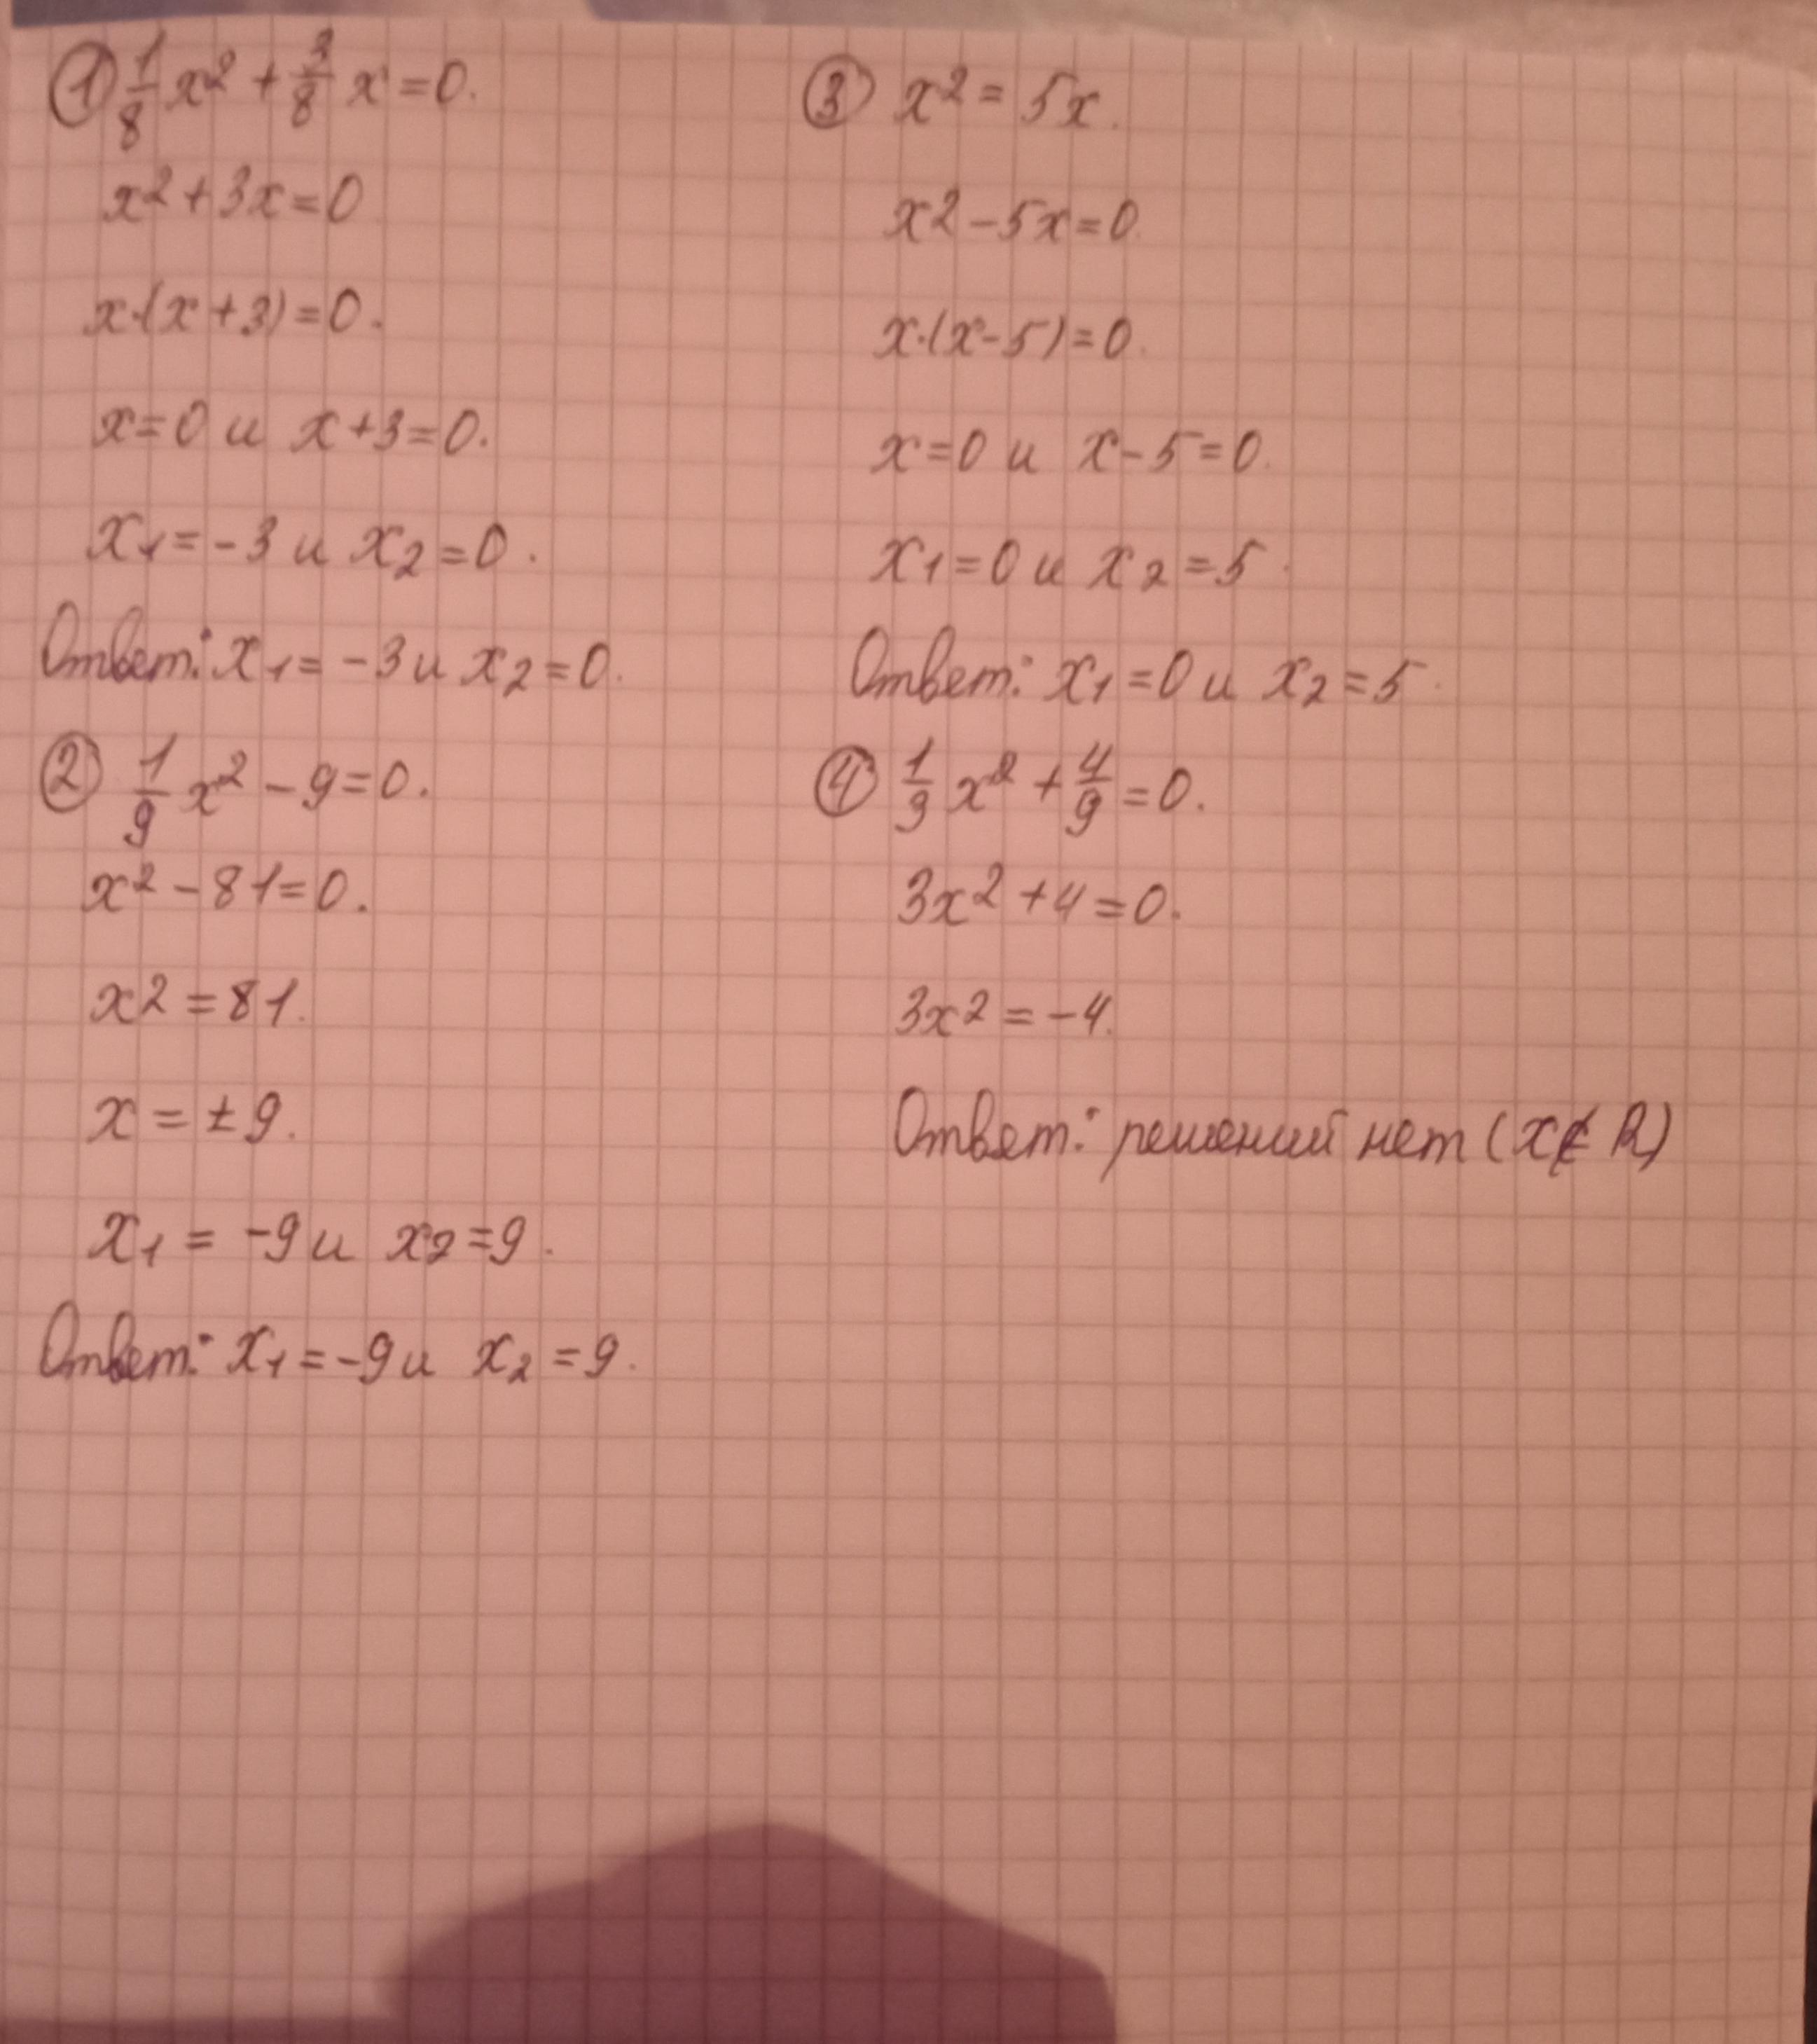 ① 1/8 x² + 3/8 x = 0.
x² + 3x = 0
x·(x + 3) = 0.
x = 0 и x + 3 = 0.
x₁ = -3 и x₂ = 0.
Ответ: x₁ = -3 и x₂ = 0.
② 1/9 x² - 9 = 0.
x² - 81 = 0.
x² = 81.
x = ±9.
x₁ = -9 и x₂ = 9.
Ответ: x₁ = -9 и x₂ = 9.
③ x² = 5x.
x² - 5x = 0.
x·(x - 5) = 0.
x = 0 и x - 5 = 0.
x₁ = 0 и x₂ = 5.
Ответ: x₁ = 0 и x₂ = 5.
④ 1/3 x² + 4/9 = 0.
3x² + 4 = 0.
3x² = -4.
Ответ: решений нет (x ∉ R)